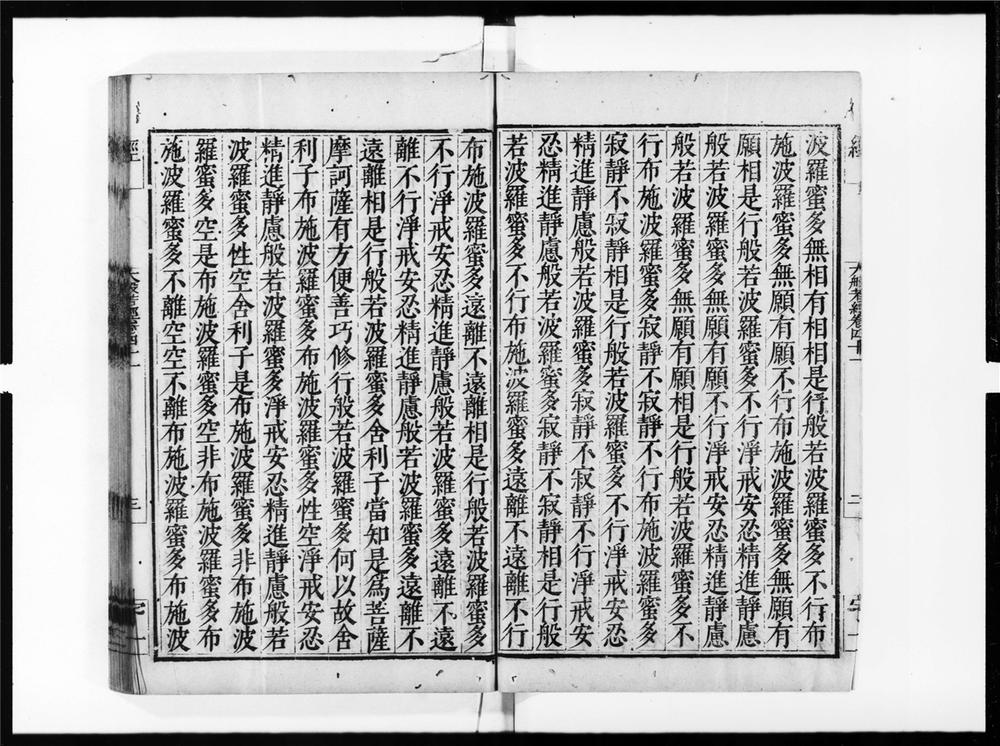 波羅蜜多無相有相相是行般若波羅蜜多不行布
施波羅蜜多無願有願不行布施波羅蜜多無願有
願相是行般若波羅蜜多不行淨戒安忍精進靜慮
般若波羅蜜多無願有願不行淨戒安忍精進靜慮
般若波羅蜜多無願有願相是行般若波羅蜜多不
行布施波羅蜜多寂靜不寂靜不行布施波羅蜜多
寂靜不寂靜相是行般若波羅蜜多不行淨戒安忍
精進靜慮般若波羅蜜多寂靜不寂靜不行淨戒安
忍精進靜慮般若波羅蜜多寂靜不寂靜相是行般
若波羅蜜多不行布施波羅蜜多遠離不遠離不行
布施波羅蜜多遠離不遠離相是行般若波羅蜜多
不行淨戒安忍精進靜慮般若波羅蜜多遠離不遠
離不行淨戒安忍精進靜慮般若波羅蜜多遠離不
遠離相是行般若波羅蜜多舍利子當知是爲菩薩
摩訶薩有方便善巧修行般若波羅蜜多何以故舍
利子布施波羅蜜多布施波羅蜜多性空淨戒安忍
精進靜慮般若波羅蜜多淨戒安忍精進靜慮般若
波羅蜜多性空舍利子是布施波羅蜜多非布施波
羅蜜多空是布施波羅蜜多空非布施波羅蜜多布
施波羅蜜多不離空空不離布施波羅蜜多布施波
經
大般若經卷四十一
三